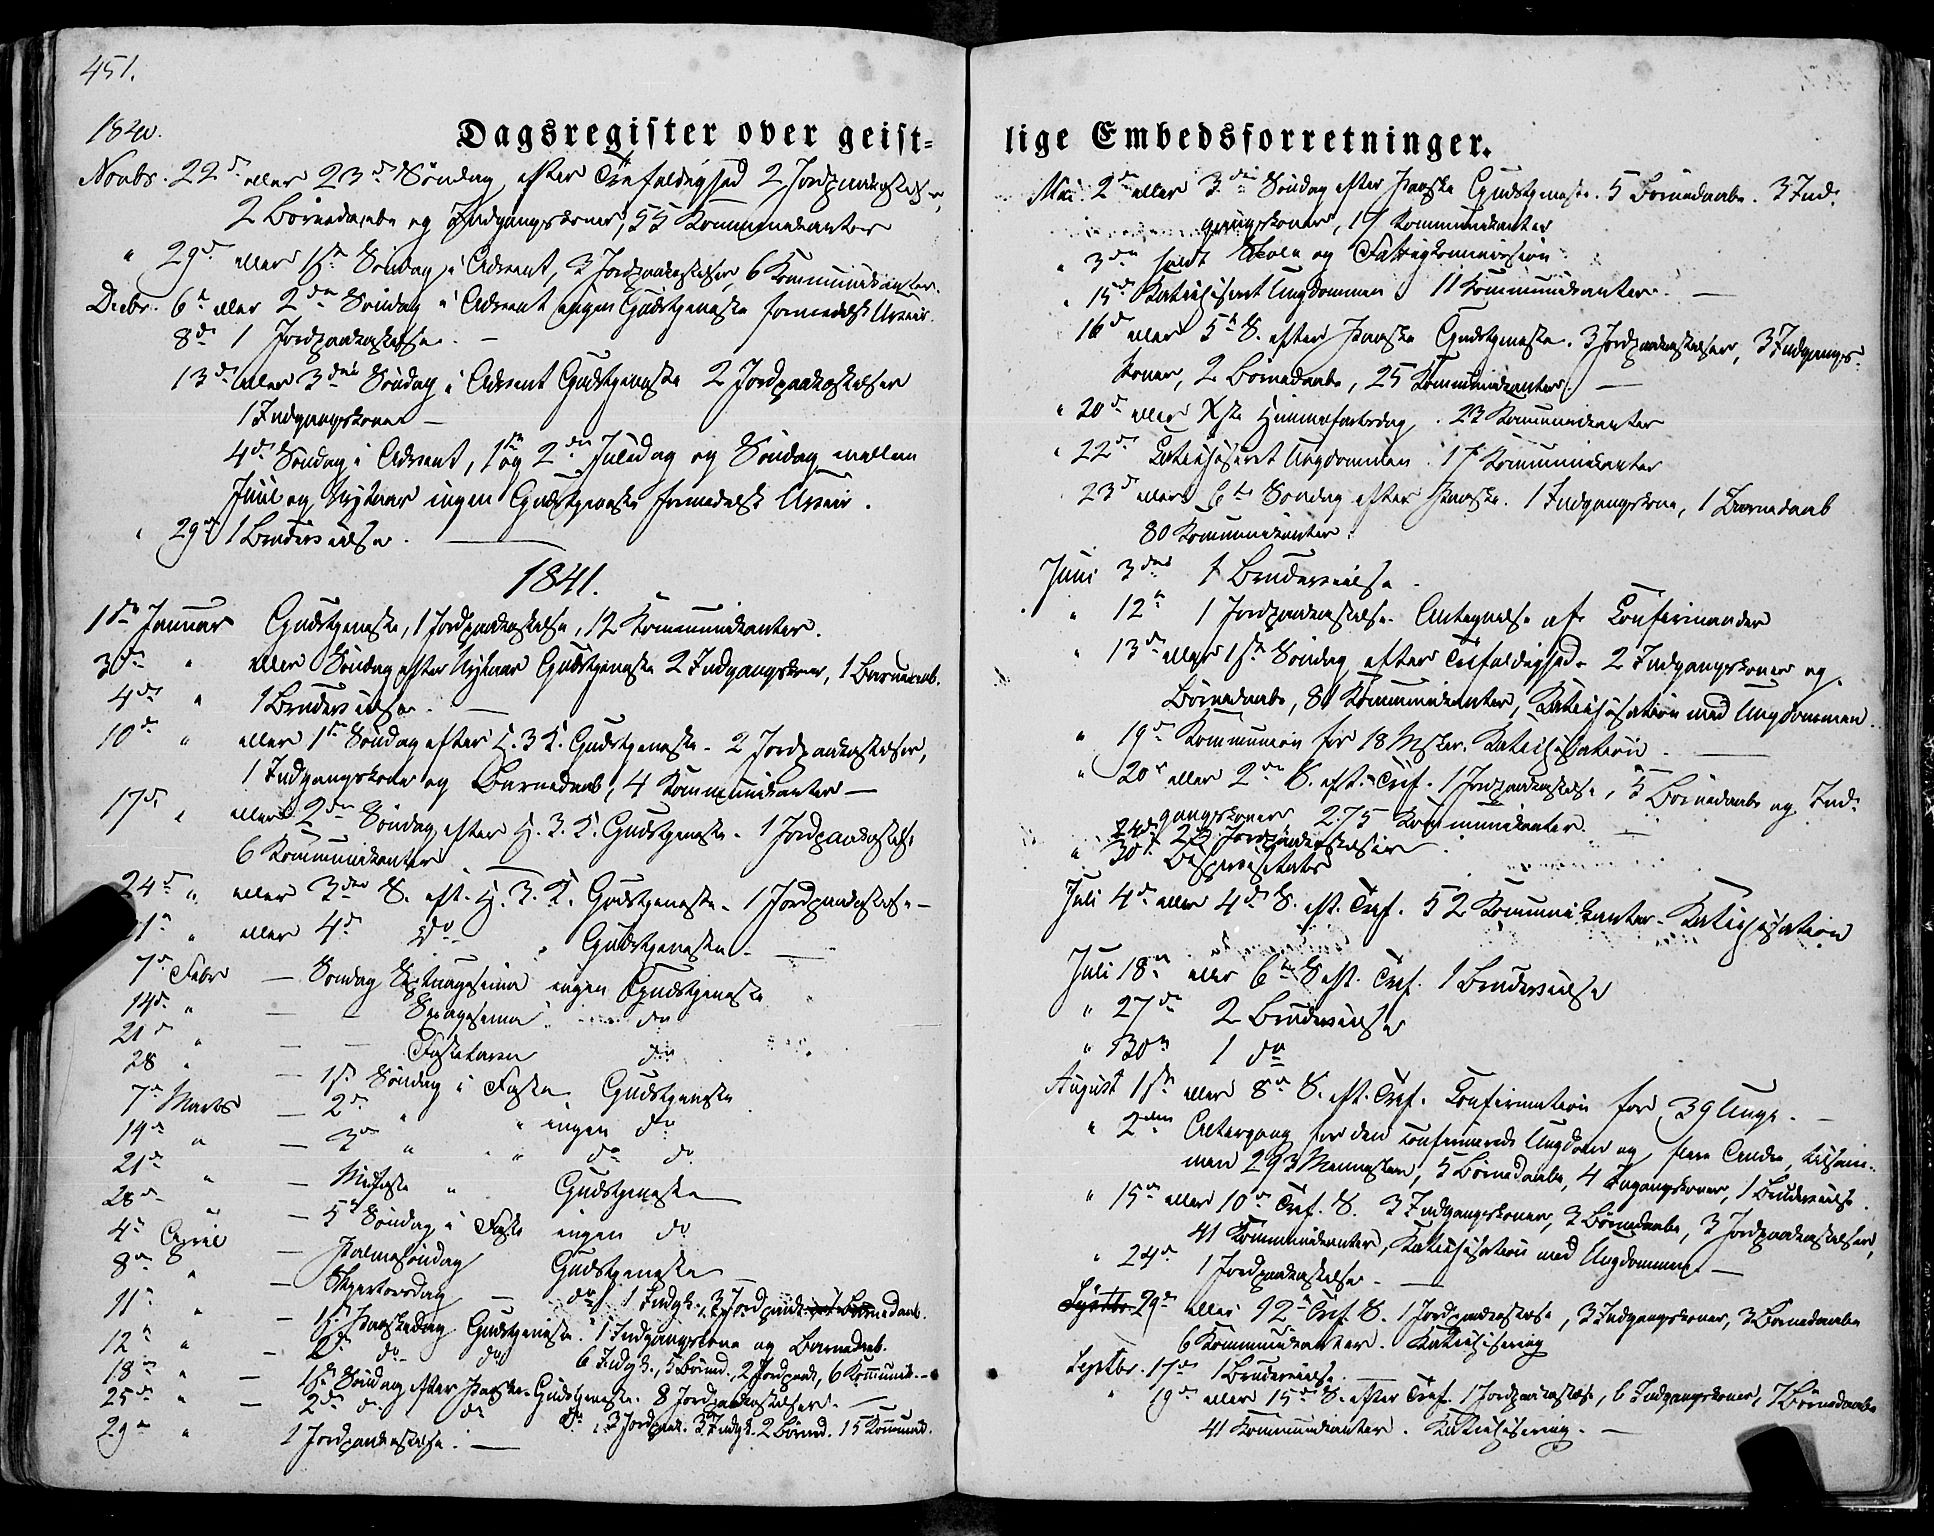 451.
1840.
Dagsregister over geist-
Novbr. 22d eller 23d Søndag efter Trefoldighed 2 Jordpaakastelser,
2 Børnedaabe og Indgangskoner, 55 Kommunikanter
" 29d eller 1ste Søndag i Advent, 3 Jordpaakastelser, 6 Kommunikanter.
Decbr. 6te eller 2den Søndag i Advent ingen Gudstjeneste formedelst Uveir.
8de 1 Jordpaakastelse. —
13de eller 3die Søndag i Advent Gudstjeneste 2 Jordpaakastelser
1 Indgangskone —
4de Søndag i Advent, 1ste og 2den Juledag og Søndag mellem
Juul og Nytaar ingen Gudstjeneste formedelst Uveir.
" 29de 1 Brudevielse. —
1841.
1ste Januar Gudstjeneste, 1 Jordpaakastelse, 12 Kommunikanter.
3die " eller Søndag efter Nytaar Gudstjeneste 2 Indgangskoner, 1 Barnedaab.
4de " 1 Brudevielse. —
10de " eller 1ste Søndag efter H. 3 K. Gudstjeneste - 2 Jordpaakastelser,
1 Indgangskone og Barnedaab, 4 Kommunikanter —
17de " eller 2den Søndag efter H. 3. K. Gudstjeneste - 1 Jordpaakastelse
6 Kommunikanter —
24de " eller 3die S. eft. H. 3. K. Gudstjeneste - 1 Jordpaakastelse —
31te " eller 4de do " Gudstjeneste - —
7de Febr — Søndag Septuagesima ingen Gudstjeneste
14de " — — Sexagesima " do
21de " — — Fastelavn do
28 " — 1ste Søndag i Faste Gudstjeneste
7de Marts — 2den " " ingen do
14de " — 3die " " do do
21de " — Midfaste " Gudstjeneste
28de " — 5te Søndag i Faste ingen do
4de April — Palmesøndag Gudstjeneste
8de " — Skjertorsdag — do 1 Indgk., 3 Jordpaak. 1 Børnedaab.
11te " — 1ste Paaskedag Gudstjeneste. 1 Indgangskone og Barnedaab.
12te " — 2den do do 6 Indgk., 5 Børned., 2 Jordpaak., 6 Kommunik. —
18de " — 1ste Søndag efter Paaske. Gudstjeneste. 8 Jordpaakastelser. —
25de " — 2den do do do, 3 Jordpaak. 3 Indgk. 2 Børned. 15 Kommunik.
29de " 1 Jordpaakastelse. —
lige Embedsforretninger.
Mai. 2den eller 3die Søndag efter Paaske Gudstjeneste. 5 Børnedaabe. 3 Ind-
gangskoner, 17 Kommunikanter
" 3die holdt Skole og Fattigkommission
" 15de Katechiseret Ungdommen 11 Kommunikanter. —
16de eller 5te S. efter Paaske Gudstjeneste. 3 Jordpaakastelser, 3 Indgangs-
koner, 2 Børnedaabe, 25 Kommunikanter. —
" 20de eller Xsti Himmelfartsdag. 23 Kommunikanter
" 22de Catechiseret Ungdommen. 17 Kommunikanter
23de eller 6te Søndag efter Paaske. 1 Indgangskone, 1 Barnedaab
80 Kommunikanter.
Juni 3die 1 Brudevielse.
" 12te 1 Jordpaakastelse. Antegnelse af Confirmander
" 13de eller 1ste Søndag efter Trefoldighed. 2 Indgangskoner og
Børnedaabe, 81 Kommunikanter, Katechisation med Ungdommen.
" 19de Kommunion for 18 Msker. Katechisation. —
" 20de eller 2den S. eft. Tref. 1 Jordpaakastelse, 5 Børnedaabe og Ind-
gangskoner 275 Kommunikanter. —
24de 2 Jordpaakastelser.
" 30te Bispevisitats
Juli 4de eller 4de S. eft. Tref. 52 Kommunikanter. Katechisation
Juli 18de eller 6te S. eft. Tref. 1 Brudevielse
" 27de 2 Brudevielser
" 30te 1 do
August 1ste eller 8de S. eft. Tref. Confirmation for 39 Unge. —
" 2den Altergang for den confirmerede Ungdom og flere Andre, tilsam-
men 293 Mennesker, 5 Børnedaabe, 4 Ingangskoner, 1 Brudevielse.
" 15de eller 10de Tref. S. 3 Indgangskoner, 3 Børnedaabe, 3 Jordpaakastelser,
41 Kommunikanter, Katechisation med Ungdommen. —
" 24de 1 Jordpaakastelse. —
Septbr. 29de eller 12te Tref. S. 1 Jordpaakastelse, 3 Indgangskoner, 3 Børnedaabe
6 Kommunikanter. Katechisering
Septbr. 17de 1 Brudevielse. —
" 19de eller 15de S. efter Tref. 1 Jordpaakastelse, 6 Indgangskoner, 7 Børnedaabe
41 Kommunikanter. Katechisering. —